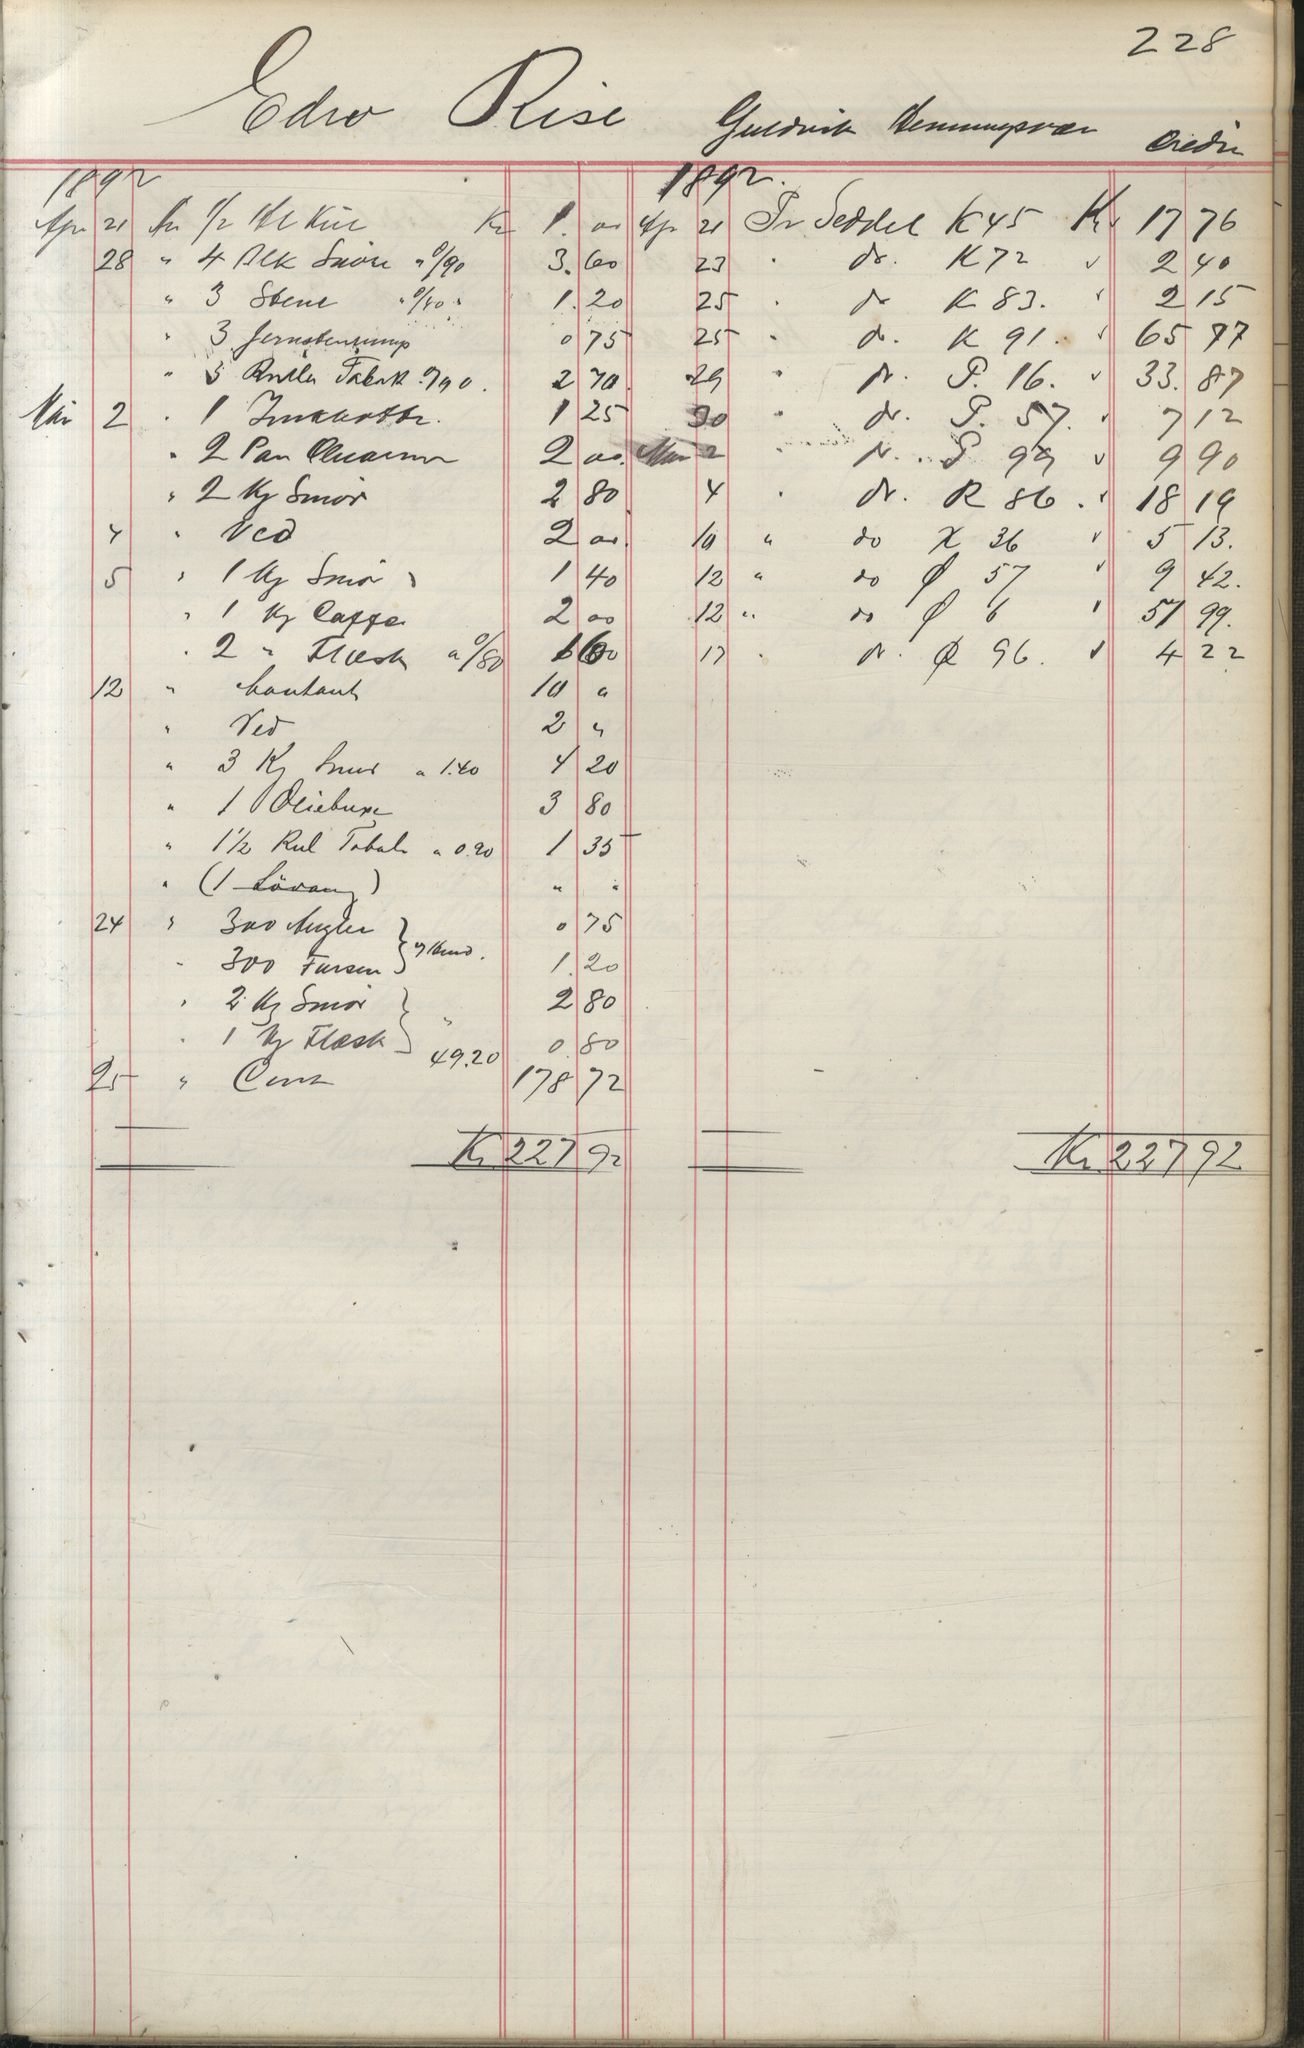 228
Edw Rise Henningsvær Credit
1892
Apr 21 An 1/2 Kr 1. 00
28 " 4 Smör " 0/90 3.60
" 3 Stene " 0/40 " 1.20
" 3 0 75
" 3 Ruller Tabak 0/90. 2 70
Mai 2 " 1 1 25
" 2 Par 2 00.
" 2 Kg Smör 2 80
4 " Ved 2 00.
5 " 1 Kg Smör 1 40
" 1 Kg Caffe 2 00
" 2 " Flæsk a 0/80 1 60
12 " Contant 10 "
" Ved 2 "
" 3 Kg Smör a 1.40 4 20
" 1 Oliebuxe 3 80
" 1 1/2 Rul Tabak a 0.90 1 35
" (1 ) " "
24 " 300 Angler 0 75
" 300 Fursen 1.20
" 2 Kg Smör 2 80
" 1 Kg Flæsk 0.80
49.20
25 " Cont 178 72
Kr 227 92
1892.
Apr 21 Pr Seddel K 45 Kr 17 76
23 " do. K 72 " 2 40
25 " do K 83. " 2 15
25 " do. K 91. " 65 77
29 " do. P. 16. " 33. 87
30 " do. P. 57. " 7 12
Mai 2 " do. P 99 " 9 90
4 " do. R 86. " 18 19
10 " do X 36 " 5 13.
12 " do Ø 57 " 9 42.
12 " do Ø 6 " 51 99.
17 " do. Q 96. " 4 22
Kr. 227 92